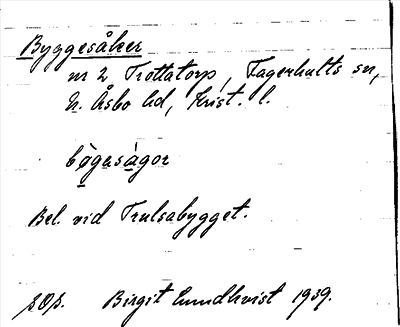 Byggesåker
nr 2 Trottatorp, Fagerhults sn,
N. Åsbo hd, Krist. l.
bö̀gasàgor
Bel. vid Trulsabygget.
Birgit Lundkvist 1939.